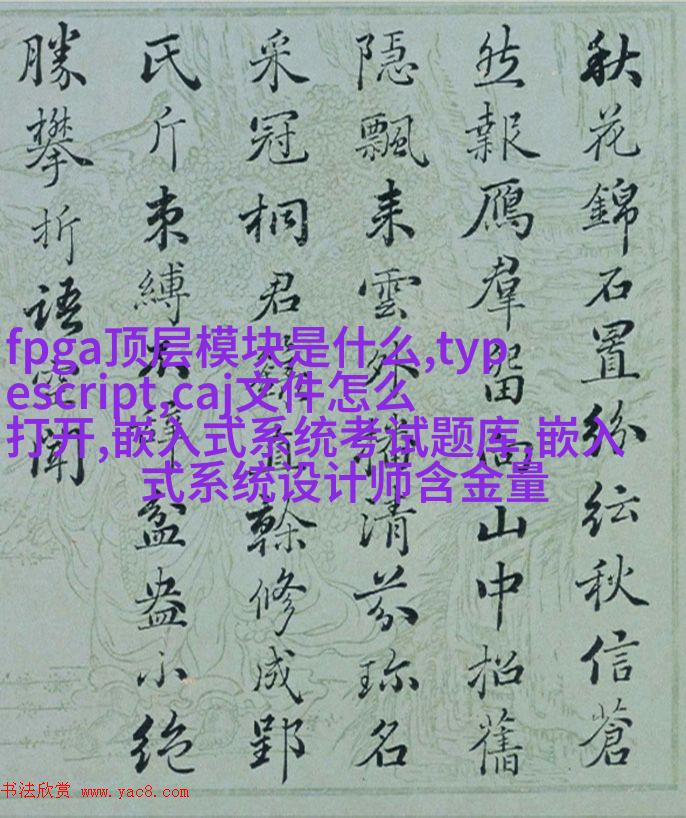 秋花錦石置紛紜秋信蒼
然報雁羣留向山中招舊
隱飄來雲外清芬珎名
采冠桐君幹修成郢
氏斤束縛盆盎小绝
勝攀折語聞
fpga顶层模块是什么,typ
escript,caj文件怎么
打开,嵌入式系统考试题库,嵌入
式系统设计师含金量
书法欣赏 www.yac8.com